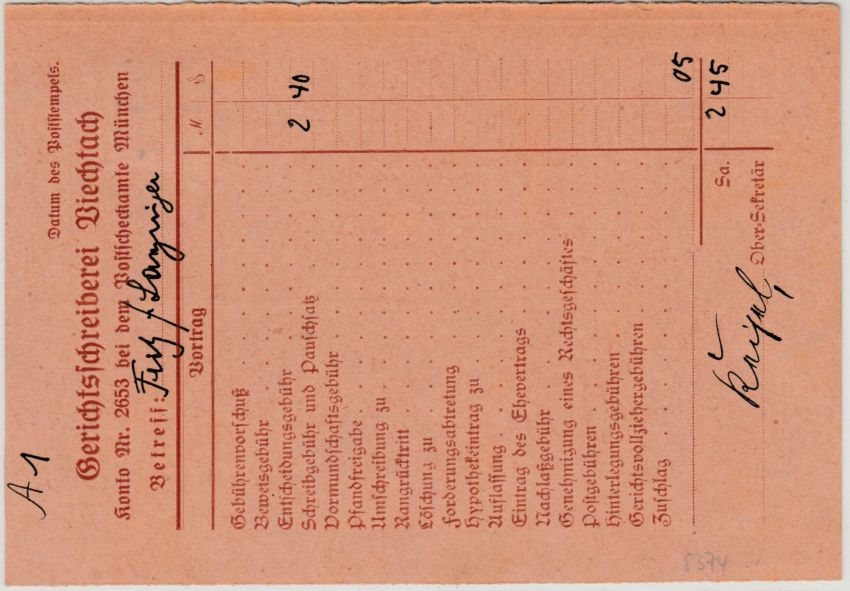 A 1
Datum des Poststempels.
Gerichtsschreiberei Viechtach
Konto Nr. 2653 bei dem Postscheckamte München
Betreff:
Vortrag M S
Gebührenvorschuß
Beweisgebühr
Entscheidungsgebühr
Schreibgebühr und Pauschsatz 2 40
Vormundschaftsgebühr
Pfandfreigabe
Umschreibung zu
Rangrücktritt
Löschung zu
Forderungsabtretung
Hypothekeintrag zu
Auflassung
Eintrag des Ehevertrags
Nachlaßgebühr
Genehmigung eines Rechtsgeschäftes
Postgebühren
Hinterlegungsgebühren
Gerichtsvollziehergebühren
Zuschlag
05
Sa. 2 45
Ober-Sekretär
8374